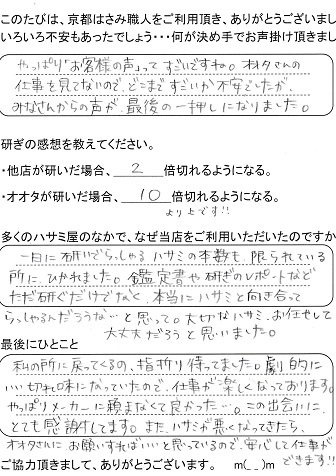 このたびは、京都はさみ職人をご利用頂き、ありがとうございまし
いろいろ不安もあったでしょう・・・何が決め手でお声掛け頂きまし
やっぱり「お客様の声」って すごいですね。オオタさんの
仕事を見てないので、どこまですごいか不安でしたが、
みなさんからの声が、最後の一押しになりました。
研ぎの感想を教えてください。
・他店が研いだ場合、 2 倍切れるようになる。
・オオタが研いだ場合、 10 倍切れるようになる。
より上です!!
多くのハサミ屋のなかで、なぜ当店をご利用いただいたのですか
一日に研いでらっしゃるハサミの本数も、限られている
所に、ひかれました。鑑定書や研ぎのレポートなど
ただ研ぐだけでなく、本当にハサミと向き合って
らっしゃるんだろうな…と思って。大切なハサミ、お任せして
大丈夫だろうと思いました。
最後にひとこと
私の所に戻ってくるの、指折り待ってました。劇的に
いい切れ味になっていたので、仕事が楽しくなっております。
やっぱりメーカーに頼まなくて良かった…。この出会いに、
とても感謝してます。また、ハサミが悪くなってきたら、
オオタさんに お願いすればいいと思っているので、安心して仕事が
できます!!
ご協力頂きまして、ありがとうございます。 m(_ _)m